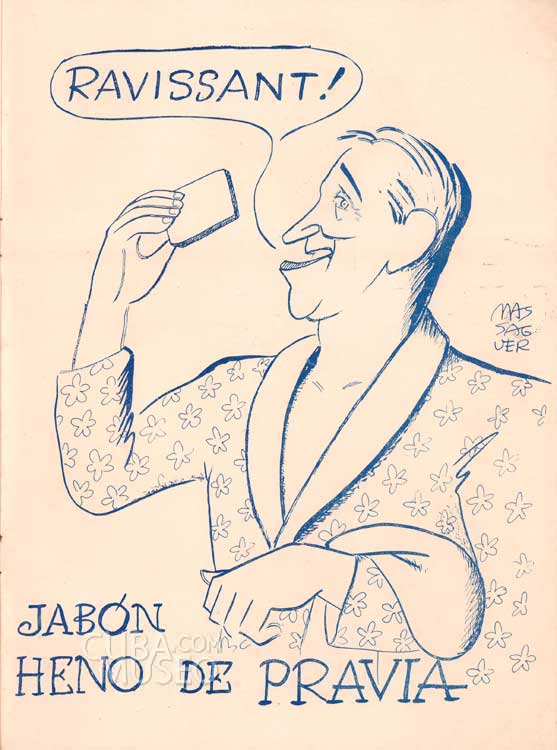 RAVISSANT!
MAS
SAG
UER
JABÓN
HENO DE PRAVIA
CUBA.COM
MUSEO